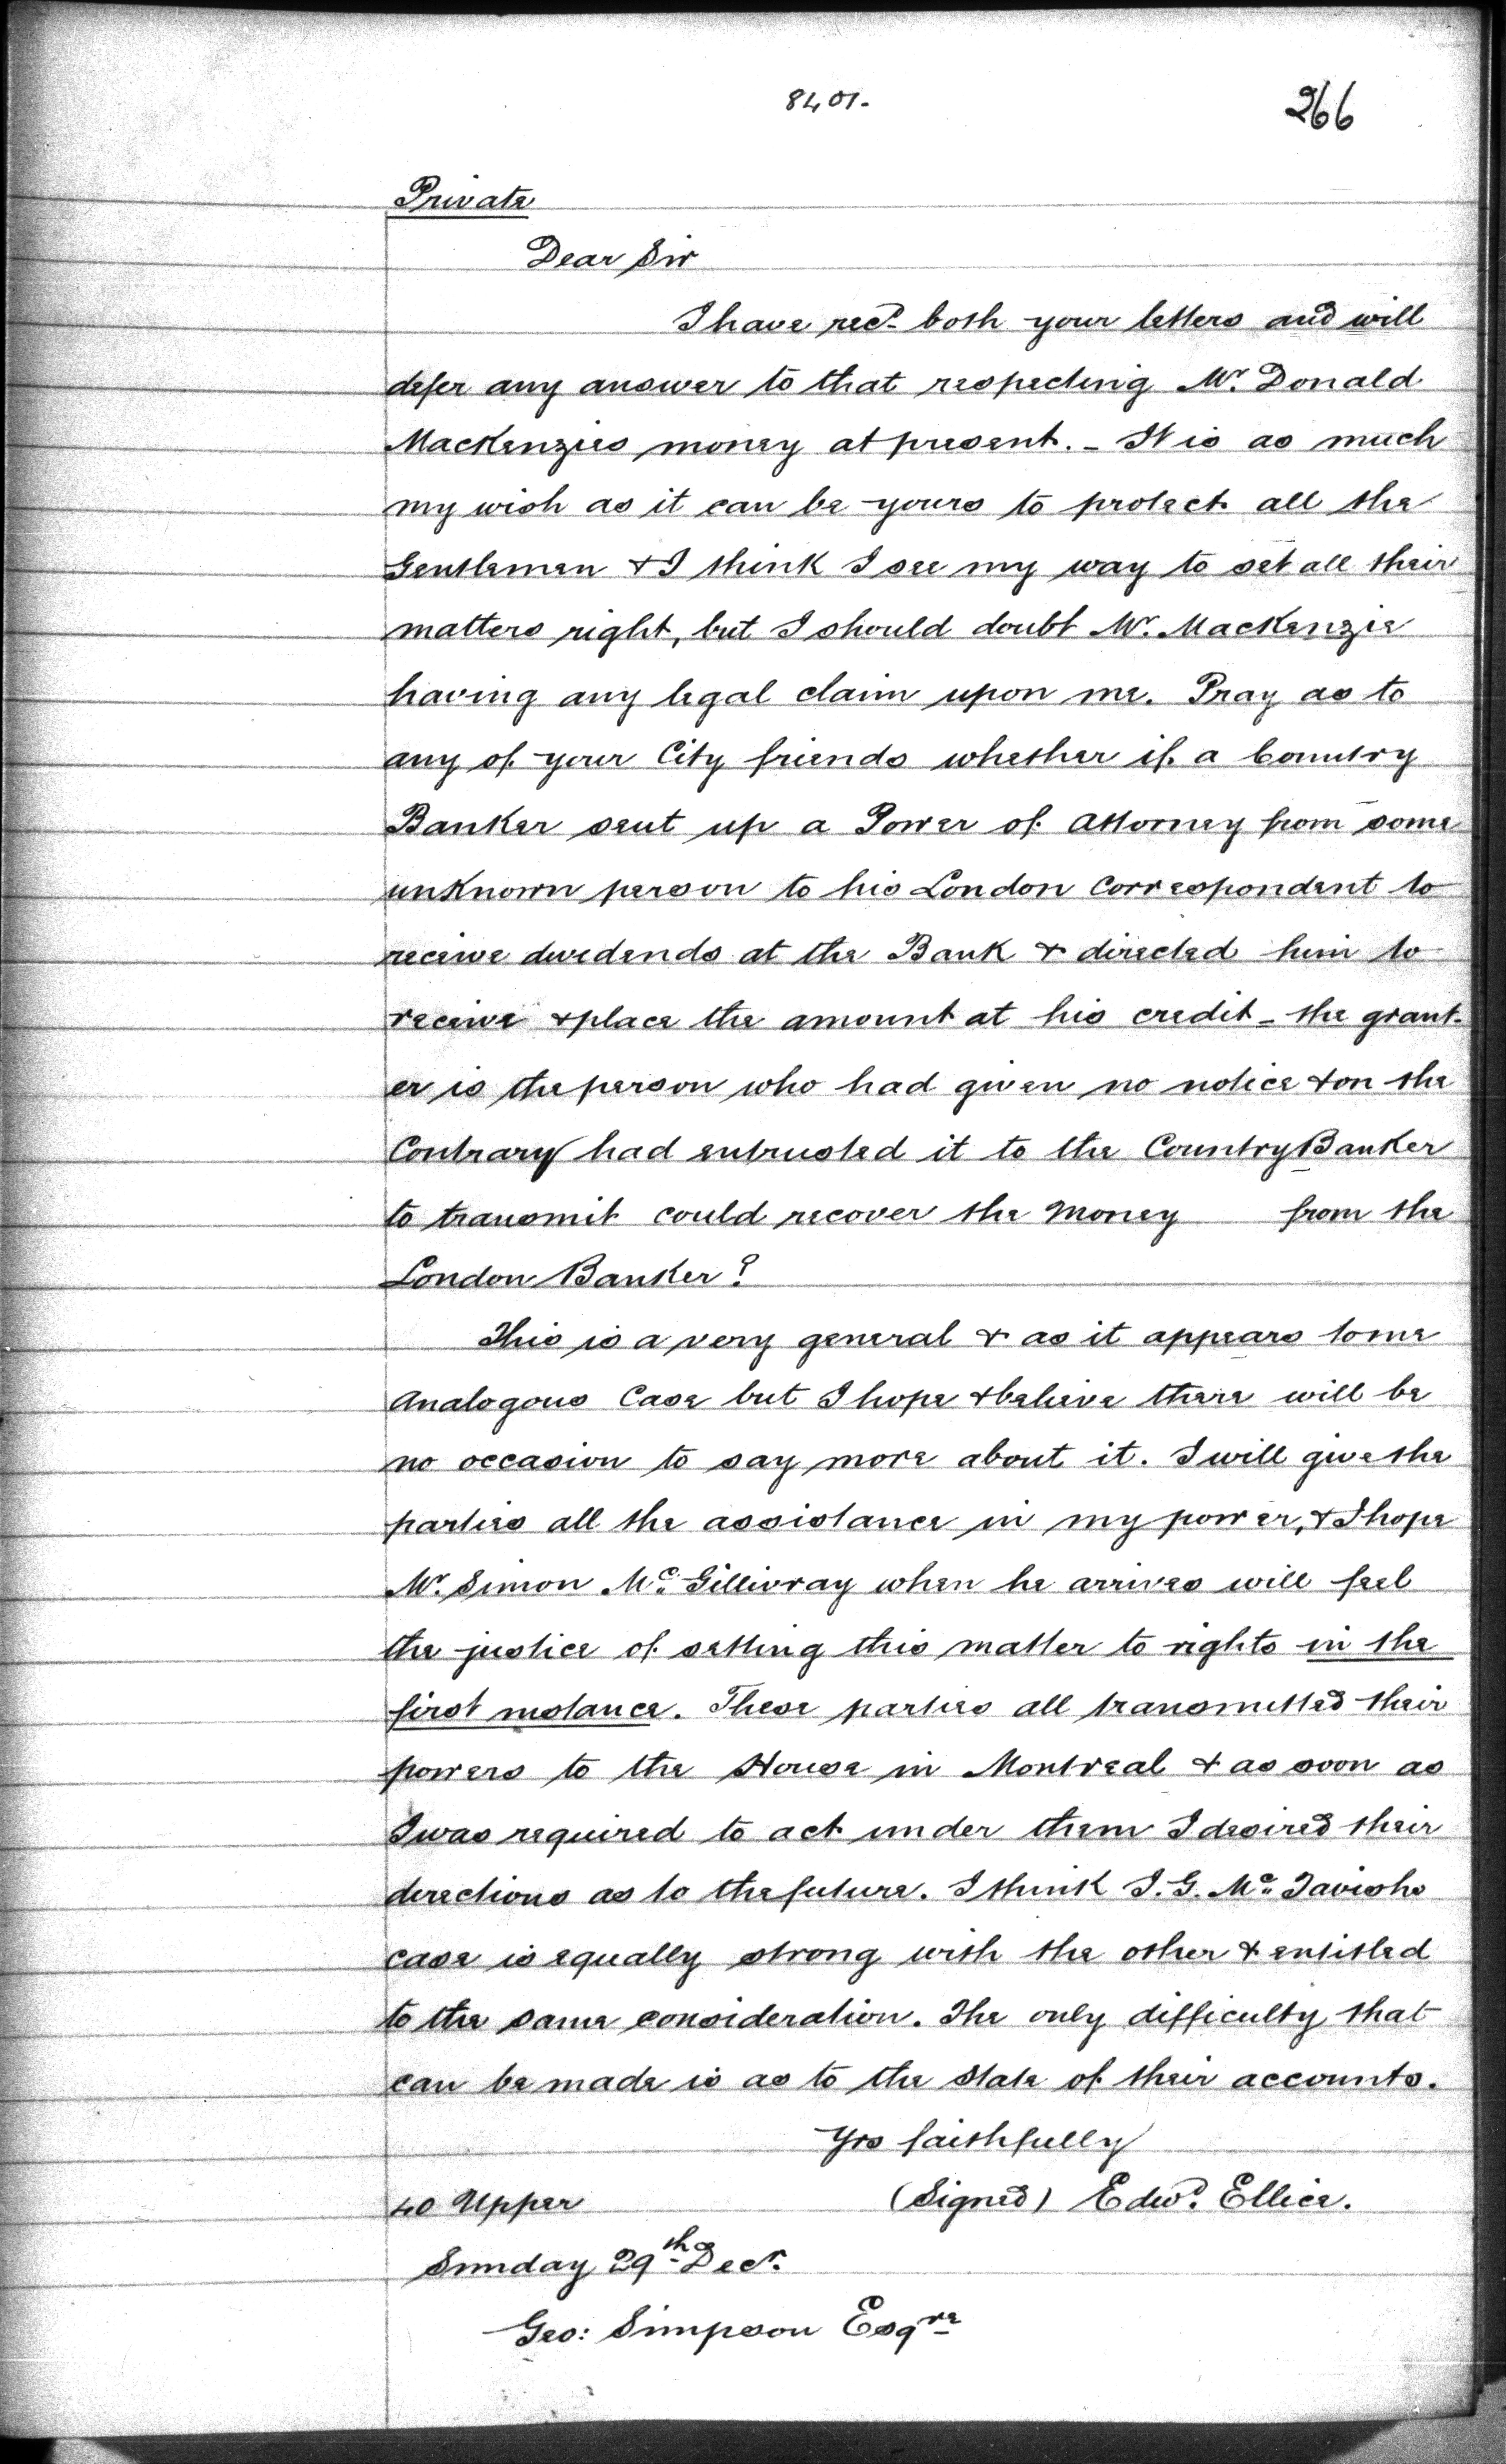 8401.
266
Private
Dear Sir
I have recd. both your letters and will
defer any answer to that respecting Mr. Donald
MacKenzies money at present. - It is as much
my wish as it can be yours to protect all the
Gentlemen & I think I see my way to set all their
matters right, but I should doubt Mr. MacKenzie
having any legal claim upon me. Pray as to
any of your City friends whether if a Country
Banker sent up a Power of Attorney from some
unknown person to his London Correspondent to
receive dividends at the Bank & directed him to
receive & place the amount at his credit - the grant-
er is the person who had given no notice & on the
Contrary had entrusted it to the Country Banker
to transmit could recover the Money from the
London Banker?
This is a very general & as it appears to me
Analogous Case but I hope & believe there will be
no occasion to say more about it. I will give the
parties all the assistance in my power, & I hope
Mr. Simon Mc. Gillivray when he arrives will feel
the justice of setting this matter to rights in the
first instance. These parties all transmitted their
powers to the House in Montreal & as soon as
I was required to act under them I desired their
directions as to the future. I think J. G. Mc. Tavishs
case is equally strong with the other & entitled
to the same consideration. The only difficulty that
can be made is as to the state of their accounts.
Yrs faithfully
(Signed) Edwd. Ellice.
40 Upper
Sunday 29th Decr.
Geo: Simpson Esqre